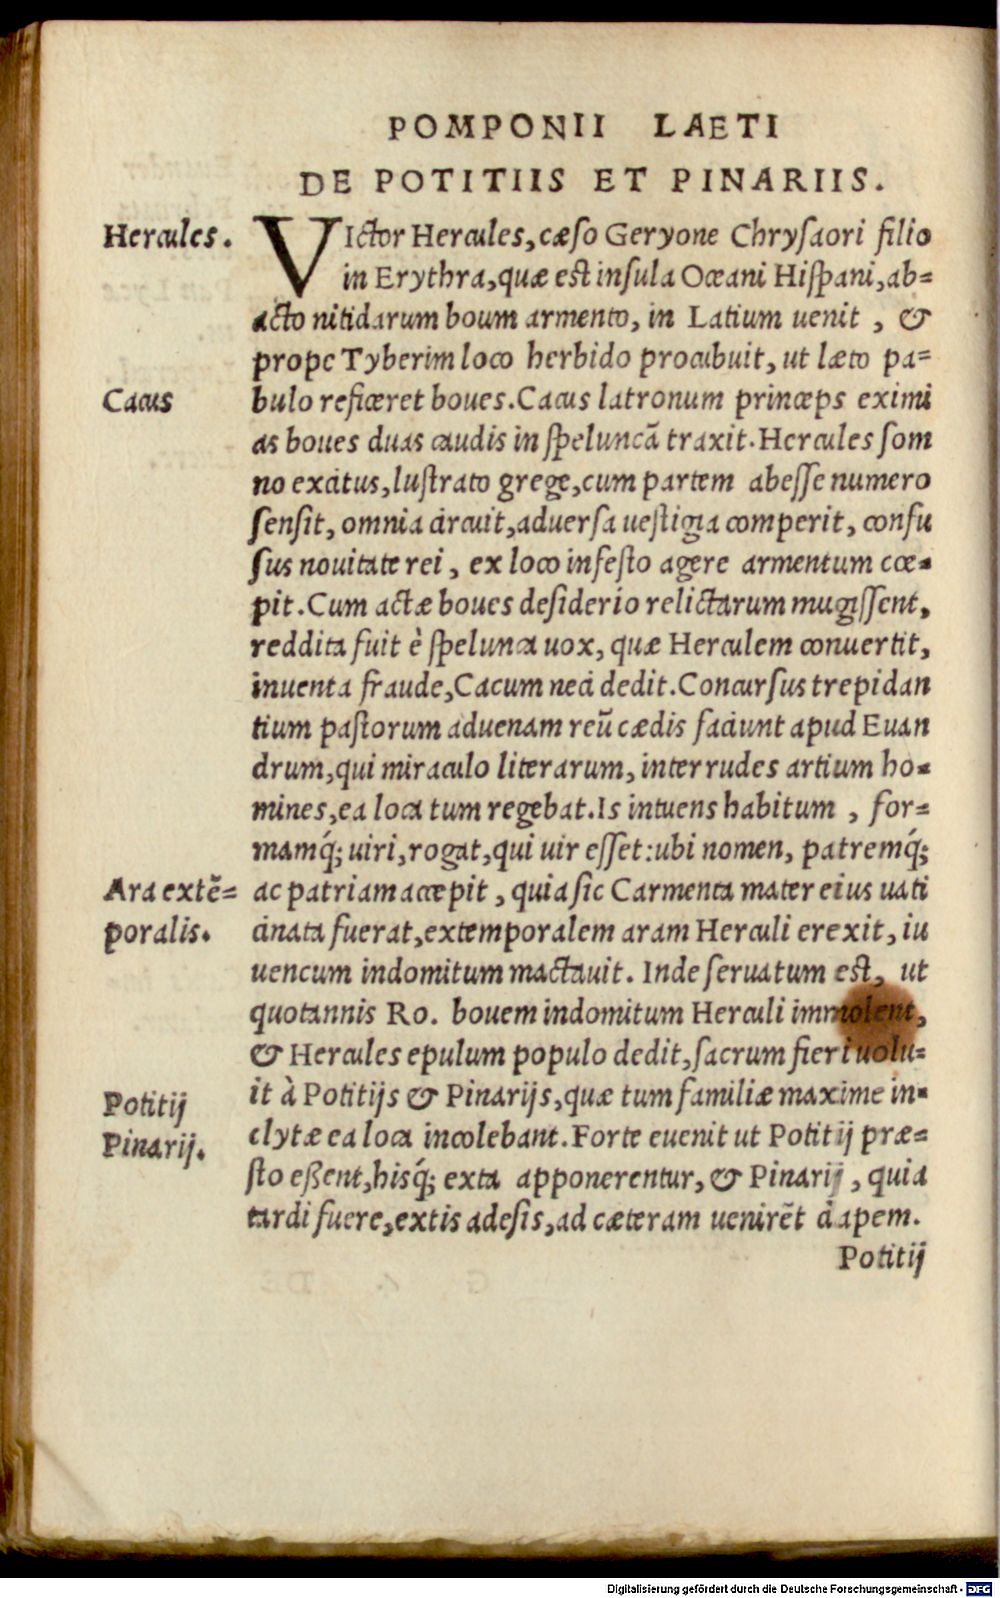 POMPONII LAETI
DE POTITIIS ET PINARIIS.
Hercules.
VIctor Hercules, cæso Geryone Chrysaori filio
in Erythra, quæ est insula Oceani Hispani, ab=
acto nitidarum boum armento, in Latium uenit , &
prope Tyberim loco herbido procubuit, ut læto pa=
Cacus
bulo reficeret boues. Cacus latronum princeps eximi
as boues duas caudis in speluncā traxit. Hercules som
no excitus, lustrato grege, cum partem abesse numero
sensit, omnia circuit, aduersa uestigia comperit, confu
sus nouitate rei , ex loco infesto agere armentum cœ=
pit. Cum actæ boues desiderio relictarum mugissent,
reddita fuit è spelunca uox, quæ Herculem conuertit,
inuenta fraude, Cacum neci dedit. Concursus trepidan
tium pastorum aduenam reū cædis faciunt apud Euan
drum, qui miraculo literarum, inter rudes artium ho=
mines, ea loca tum regebat. Is intuens habitum , for=
mamq́; uiri, rogat, qui uir esset: ubi nomen, patremq́;
Ara extē=
poralis.
ac patriam accepit , quia sic Carmenta mater eius uati
cinata fuerat, extemporalem aram Herculi erexit, iu
uencum indomitum mactauit. Inde seruatum est, ut
quotannis Ro. bouem indomitum Herculi immolent,
& Hercules epulum populo dedit, sacrum fieri uolu=
Potitij
Pinarij.
it à Potitijs & Pinarijs, quæ tum familiæ maxime in=
clytæ ea loca incolebant. Forte euenit ut Potitij præ=
sto eßent, hisq́; exta apponerentur, & Pinarij , quia
tardi fuere, extis adesis, ad cæteram uenirēt dapem.
Potitij
Digitalisierung gefördert durch die Deutsche Forschungsgemeinschaft - DFG